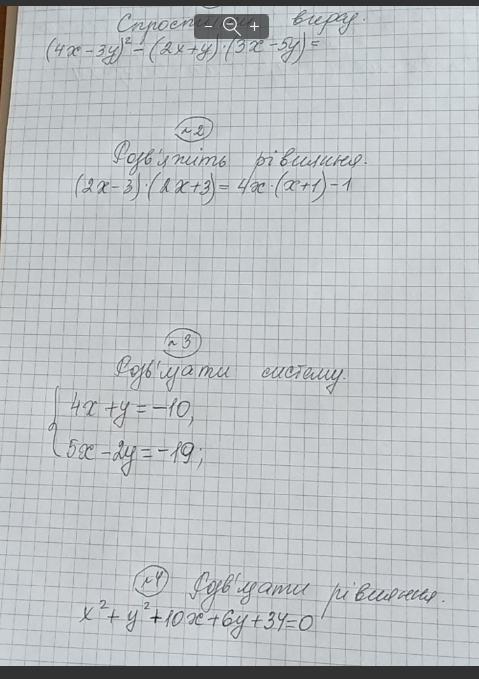 Спростити вираз.
(4x-3y)²-(2x+y)·(3x-5y)=
№2
Розв'яжіть рівняння.
(2x-3)·(2x+3)=4x·(x+1)-1
№3
Розв'язати систему.
4x+y=-10,
5x-2y=-19;
№4 Розв'язати рівняння.
x²+y²+10x+6y+34=0